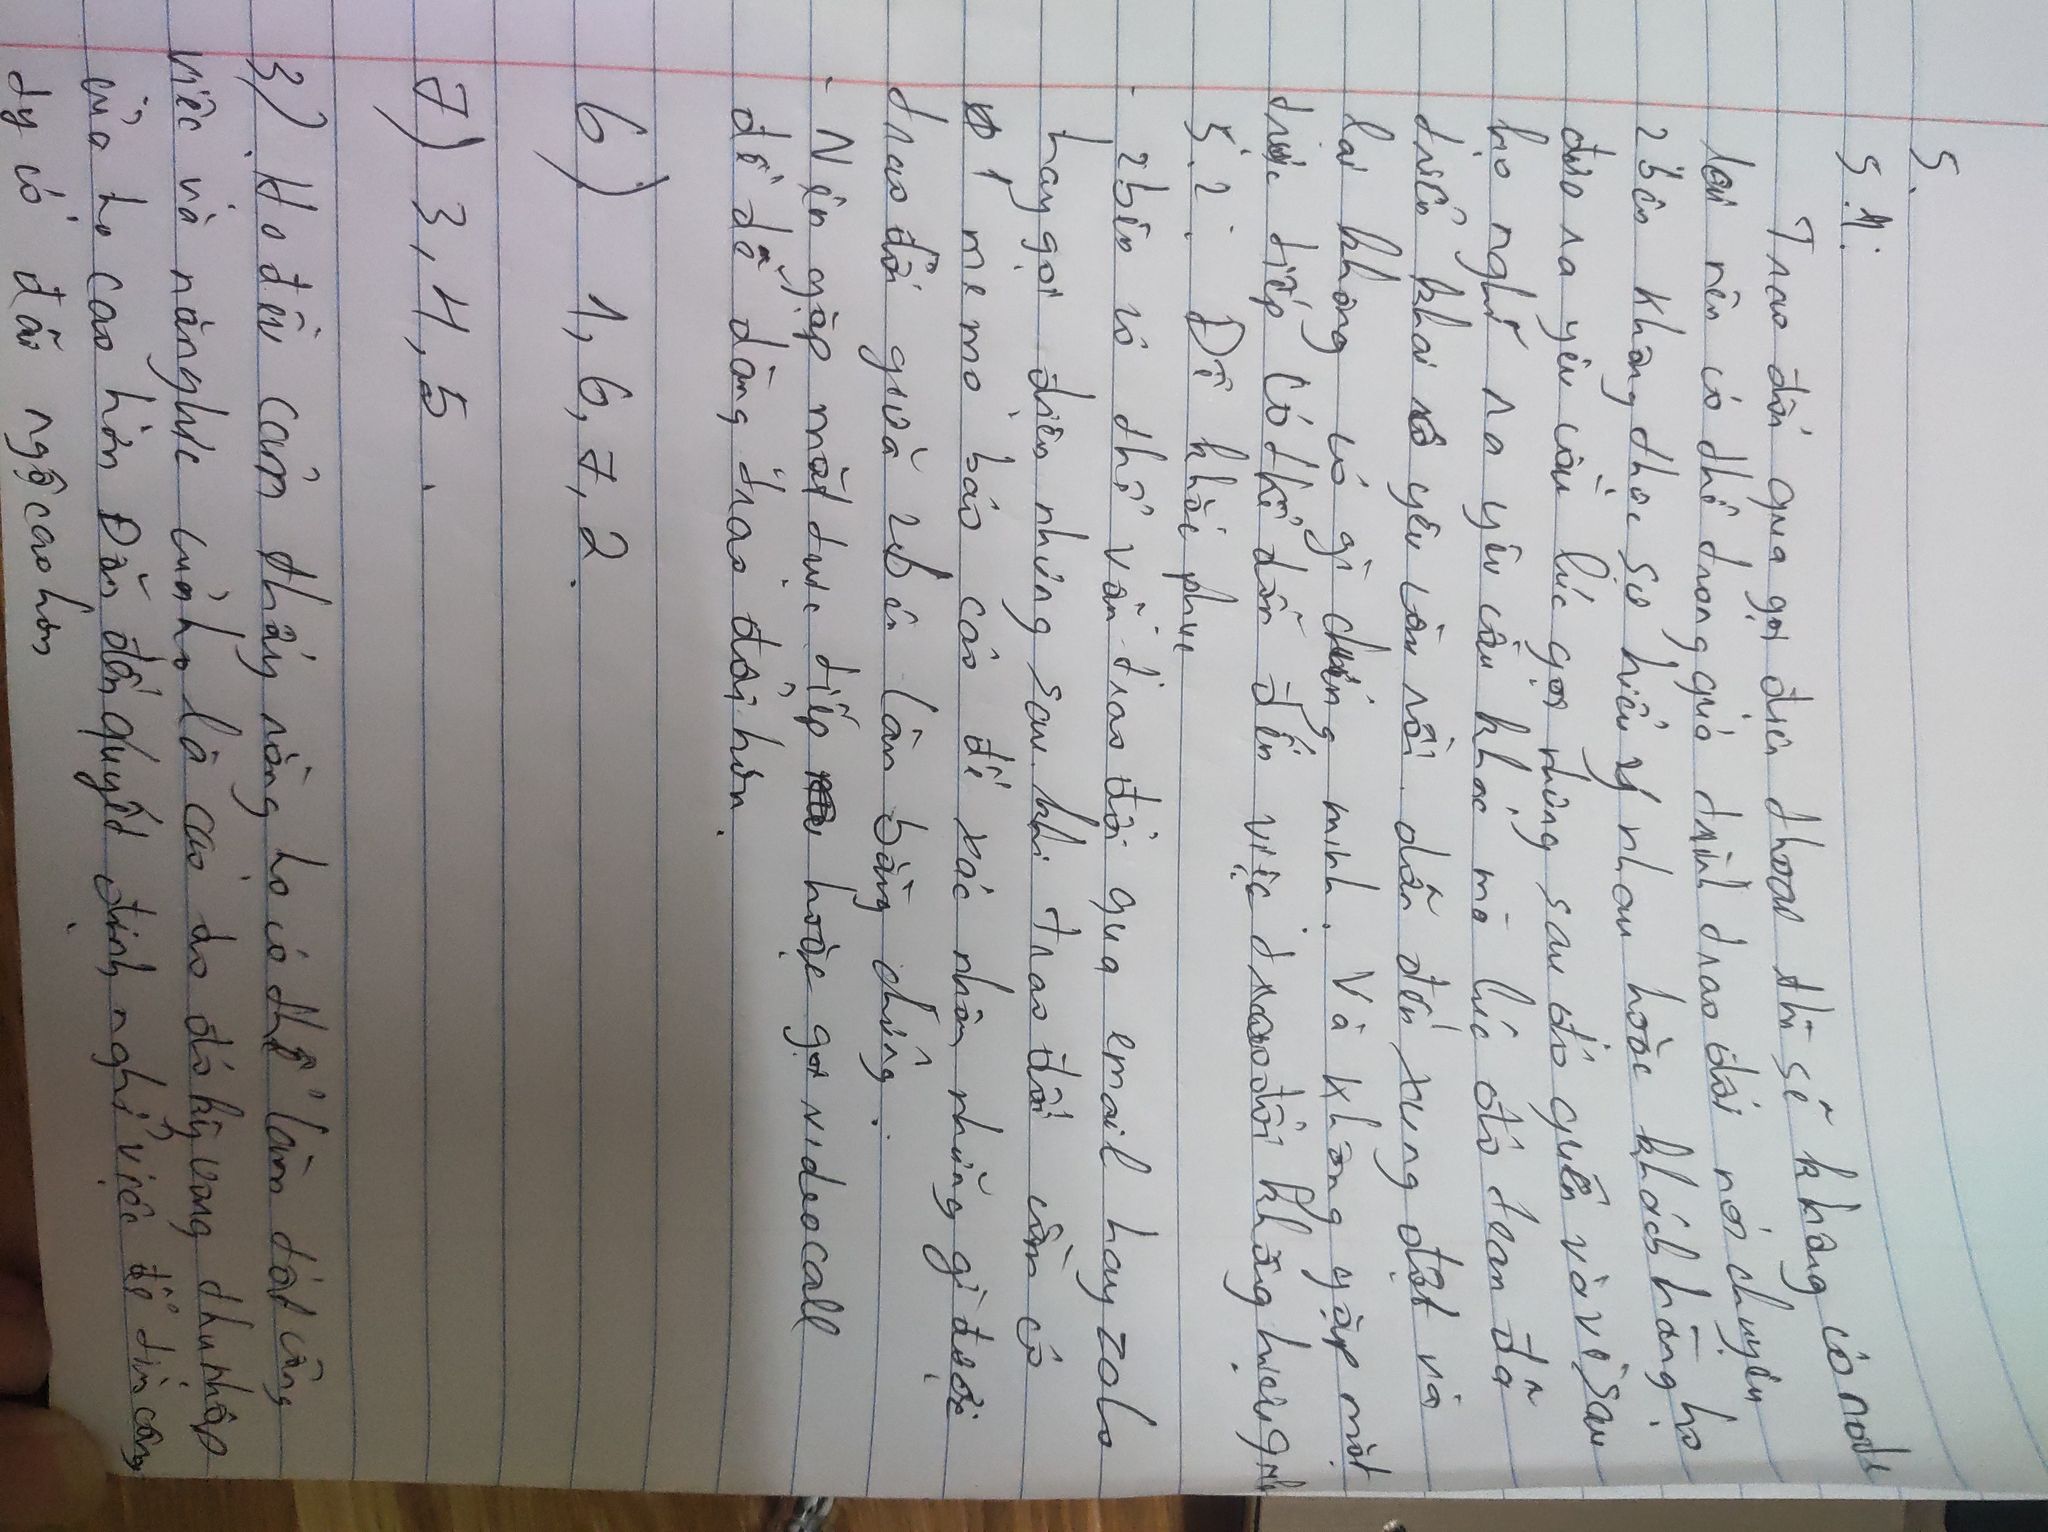 5.
5.1.
Trao đổi qua gọi điện thoại thì sẽ không có note
lại nên có thể trong quá trình trao đổi nói chuyện
2 bên không thực sự hiểu ý nhau hoặc khách hàng họ
đưa ra yêu cầu lúc gọi nhưng sau đó quên và về sau
họ nghĩ ra yêu cầu khác mà lúc đó team đã
triển khai yêu cầu rồi. dẫn đến xung đột và
lại không có gì chứng minh. Và không gặp mặt
trực tiếp có thể dẫn đến việc trao đổi không hiệu quả
5.2. Để khắc phục
- 2 bên có thể vẫn trao đổi qua email hay zalo
hay gọi điện nhưng sau khi trao đổi cần có
1 memo báo cáo để xác nhận những gì được
trao đổi giữa 2 bên làm bằng chứng.
- Nên gặp mặt trực tiếp hoặc gọi videocall
để dễ dàng trao đổi hơn.
6) 1, 6, 7, 2.
7) 3, 4, 5.
3) Họ đều cảm thấy rằng họ có thể làm tốt công
việc và năng lực của họ là cao do đó kỳ vọng thu nhập
của họ cao hơn Dẫn đến quyết định nghỉ việc để tìm công
ty có đãi ngộ cao hơn